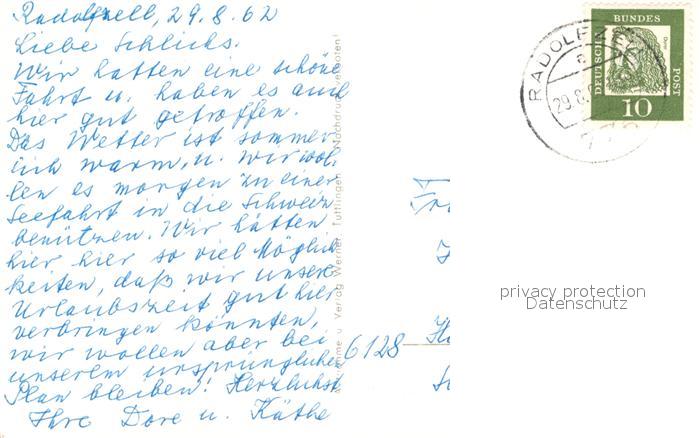 Radolfzell, 29.8.62
Liebe Schlichs.
Wir hatten eine schöne
Fahrt u. haben es auch
hier gut getroffen.
Das Wetter ist sommer-
lich warm, u. wir wol-
len es morgen zu einer
Seefahrt in die Schweiz
benützen. Wir hätten
hier hier so viel Möglich
keiten, daß wir unsere
Urlaubszeit gut hier
verbringen könnten,
wir wollen aber bei
unserem ursprünglichen
Plan bleiben! Herzlichst
Ihre Dore u. Käthe
Verlag Werner, Tuttlingen Nachdruck verboten!
6128
RADOLFZELL
29.8.
DEUTSCHE
BUNDES
POST
Dürer
10
privacy protection
Datenschutz